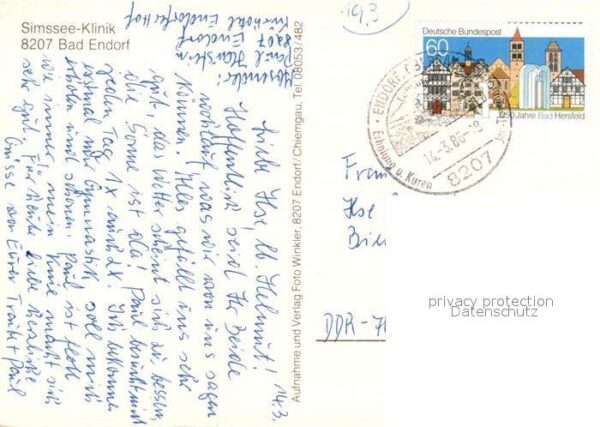 Simssee-Klinik
8207 Bad Endorf
Absender:
Paul
8207 Endorf
Kurhotel Endorfer Hof
14.3.
Liebe Ilse, lb. Helmut!
Hoffentlich seid Ihr Beide
wohlauf, was wir von uns sagen
können. Alles gefällt uns sehr
gut, das Wetter scheint sich zu bessern,
die Sonne ist da! Paul
jeden Tag 1x auch 2x. Ich bekomme
mal nur Gymnastik, soll mich
erholen und schonen. Paul ist
wie immer, mein Knie macht sich
sehr gut. Für heute liebe herzliche
Grüsse von Eurer Traudl + Paul
Aufnahme und Verlag Foto Winkler, 8207 Endorf/Chiemgau, Tel. 08053/482
19.3
Deutsche Bundespost
60
1250 Jahre Bad Hersfeld
ENDORF
14.-3.86
Erholung u. Kuren
8207
Ilse
DDR-
privacy protection
Datenschutz